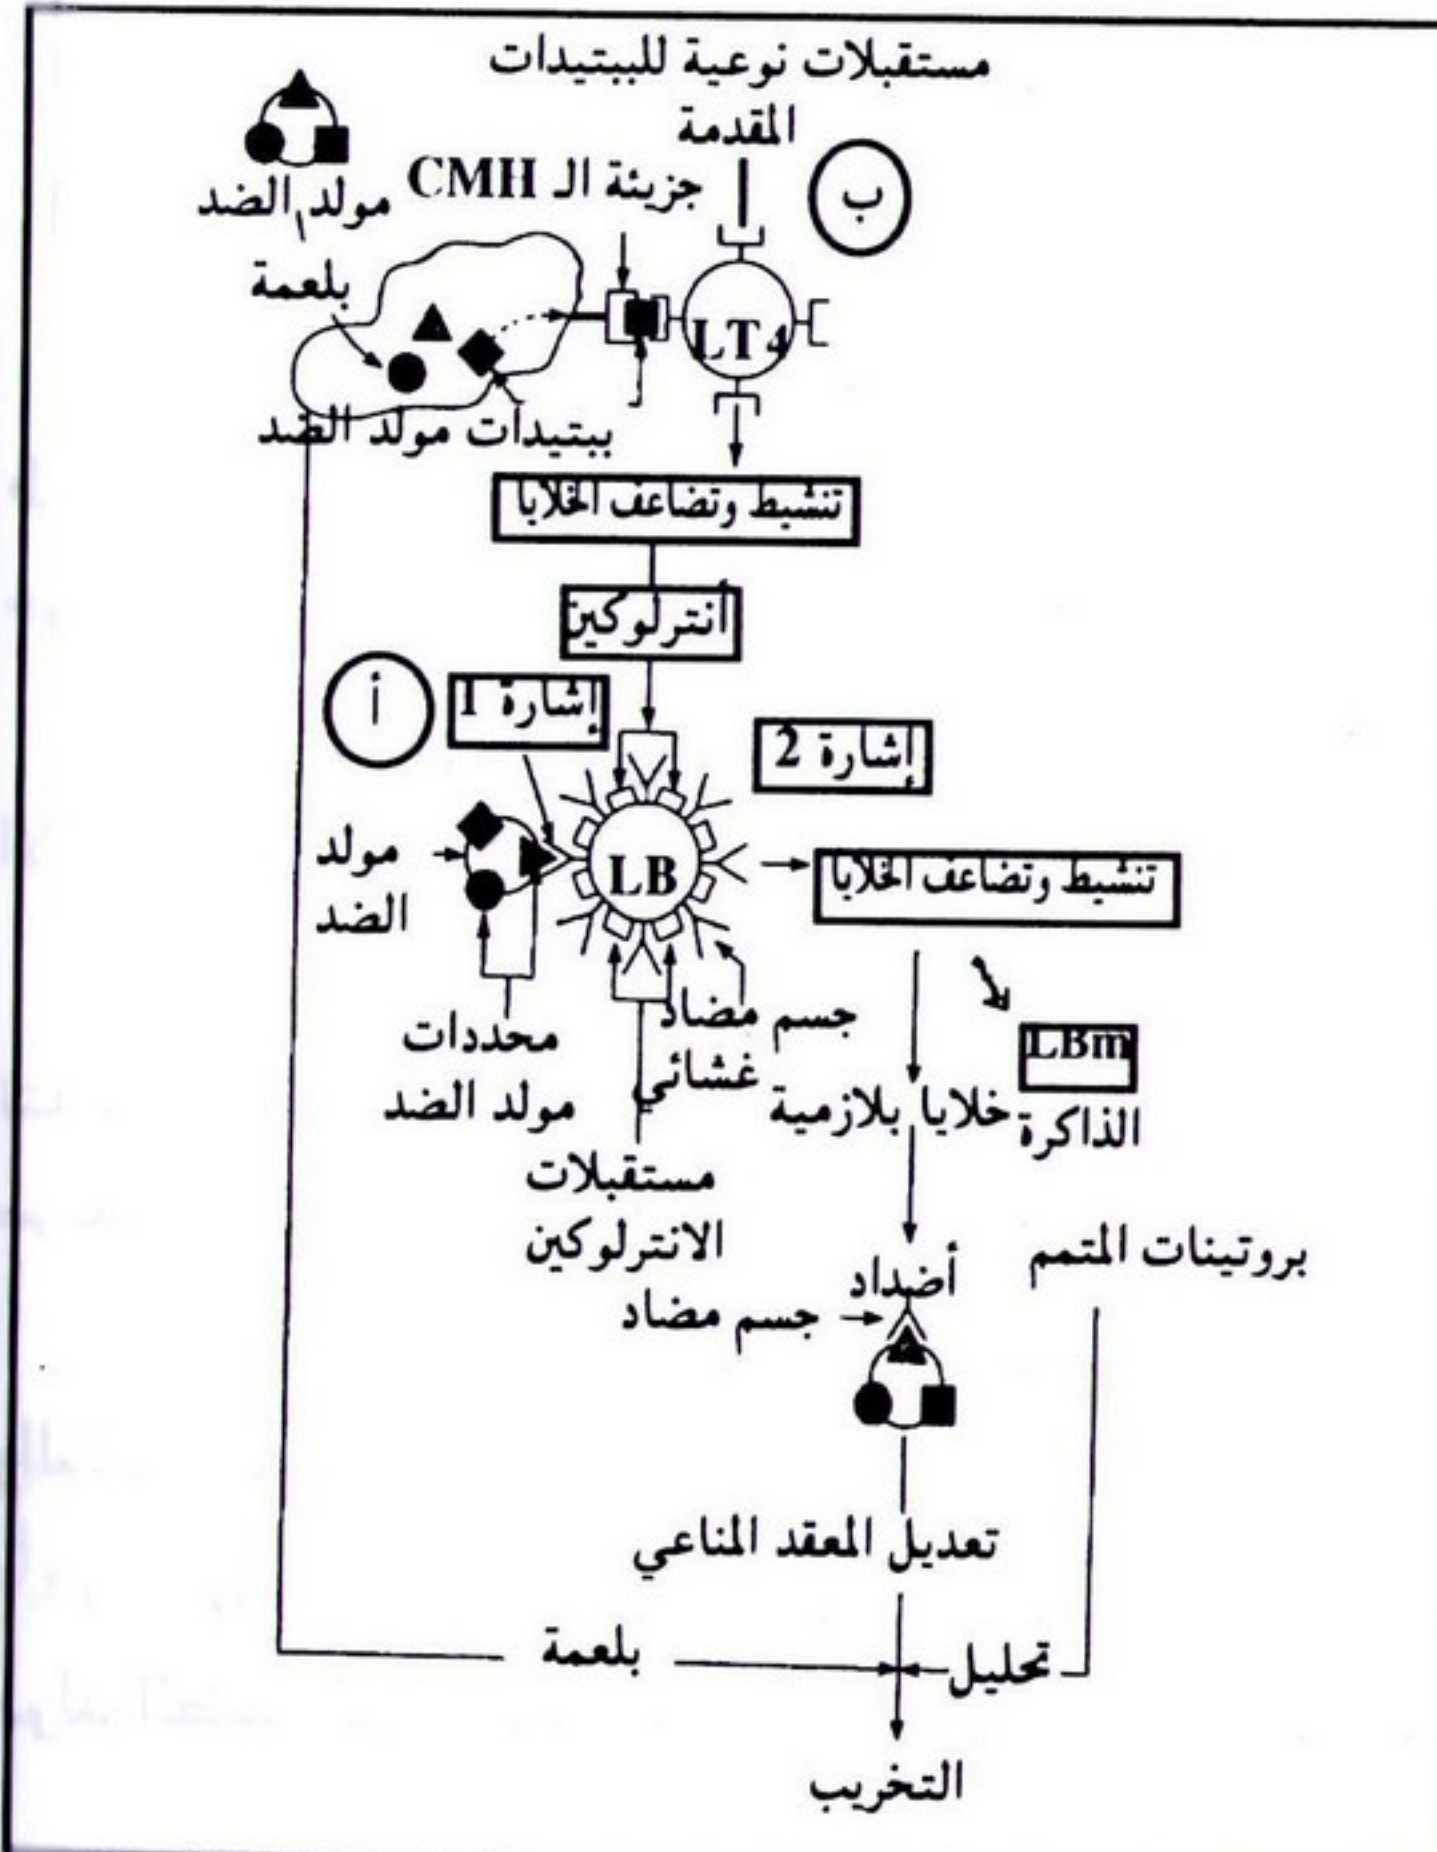 مستقبلات نوعية للببتيدات
المقدمة
ب
جزيئة الـ CMH
مولد الضد
بلعمة
LT4
ببتيدات مولد الضد
تنشيط وتضاعف الخلايا
أنترلوكين
أ
إشارة 1
إشارة 2
مولد
الضد
LB
تنشيط وتضاعف الخلايا
جسم مضاد
غشائي
محددات
مولد الضد
LBm
الذاكرة
خلايا بلازمية
مستقبلات
الانترلوكين
بروتينات المتمم
أضداد
جسم مضاد
تعديل المعقد المناعي
بلعمة
تحليل
التخريب